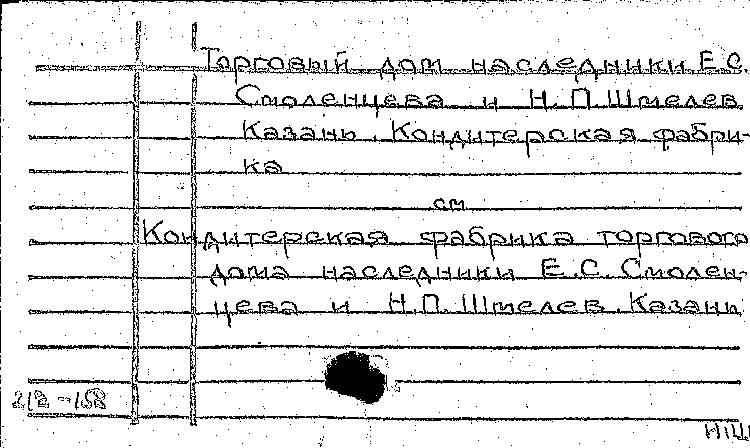 Торговый дом наследники Е.С.
Смоленцева и Н.П.Шмелев.
Казань. Кондитерская фабри-
ка
см
Кондитерская фабрика торгового
дома наследники Е.С. Смолен-
цева и Н.П. Шмелев. Казань
212-158